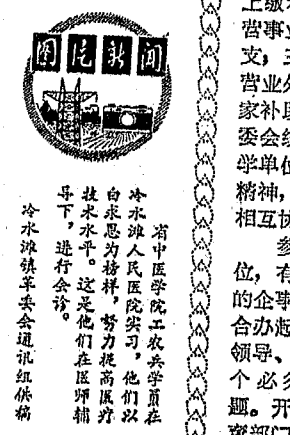 图片新闻
省中医学院工农兵学员在
冷水滩人民医院实习，他们以
白求恩为榜样，努力提高医疗
技术水平。这是他们在医师辅
导下，进行会诊。
冷水滩镇革委会通讯组供稿
上缴
营事业
支，
营业外
家补
委会
学单位
精神，
相互协
参
位，有
的企事
合办起
领导、
个必须
题。开